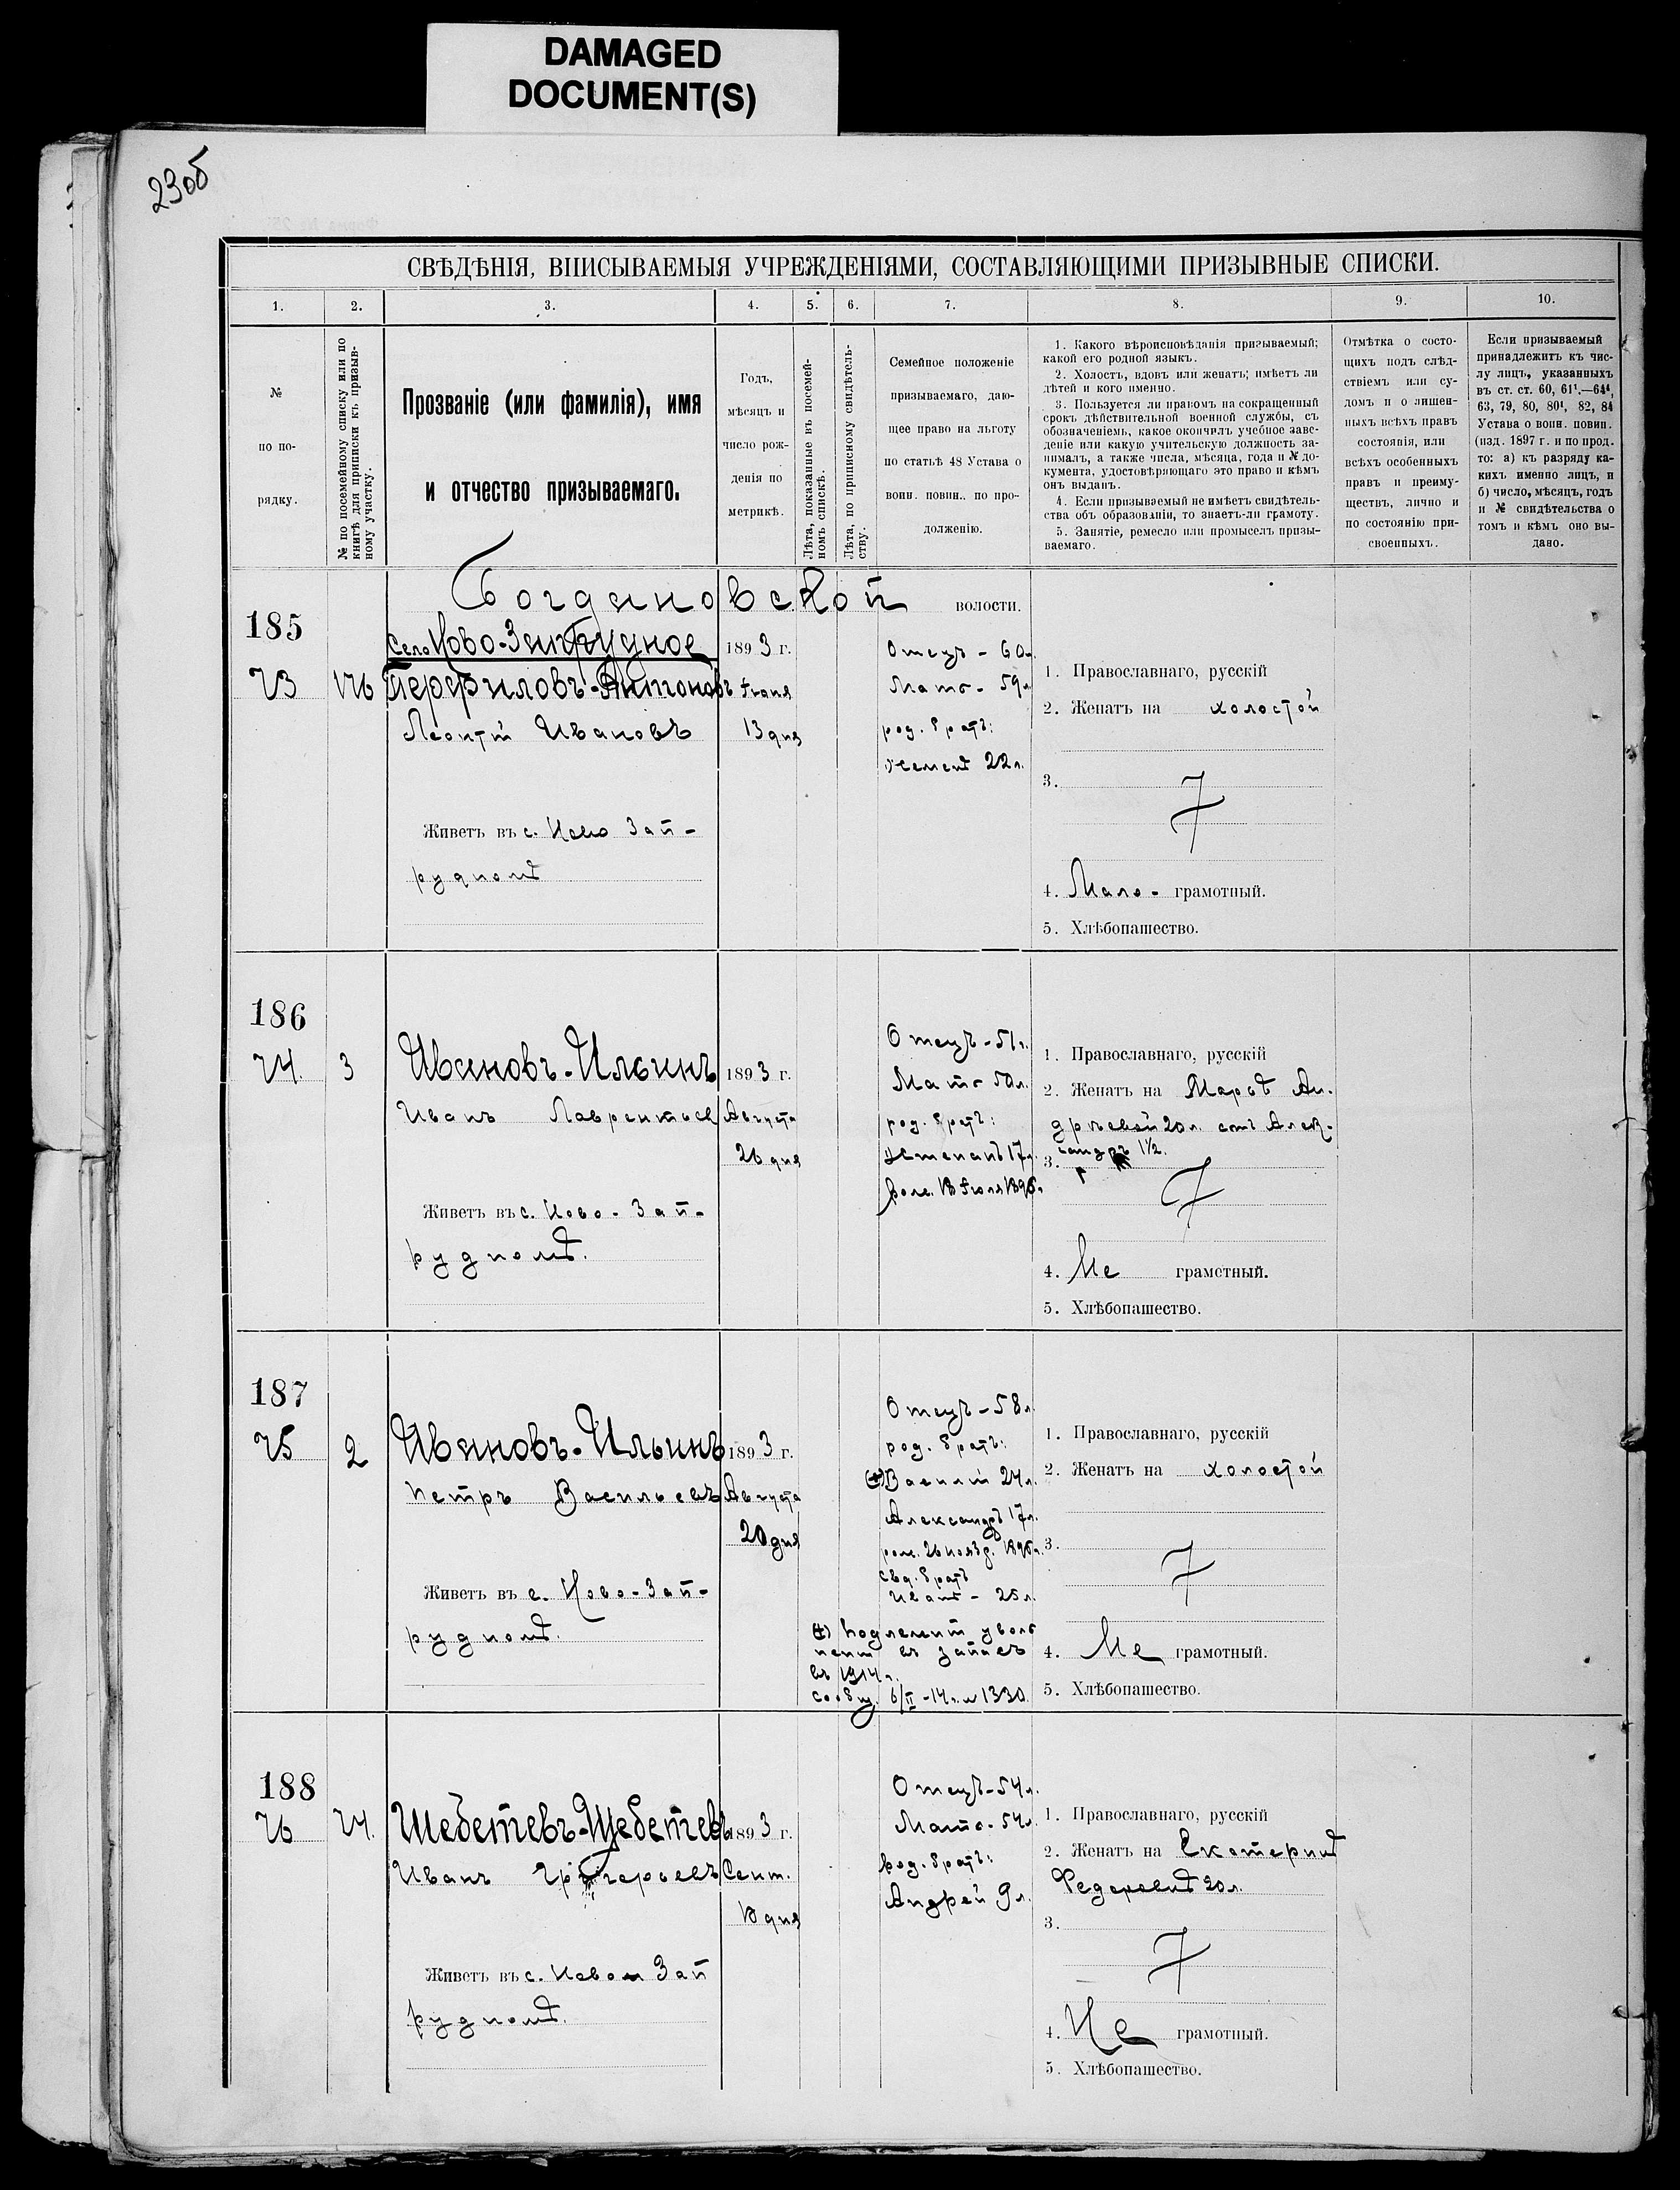 DAMAGED
DOCUMENT(S)
23об
СВѢДѢНІЯ, ВПИСЫВАЕМЫЯ УЧРЕЖДЕНІЯМИ, СОСТАВЛЯЮЩИМИ ПРИЗЫВНЫЕ СПИСКИ.
1. 2. 3. 4. 5. 6. 7. 8. 9. 10.
№
по по-
рядку.
№ по посемейному списку или по
книгѣ для приписки къ призыв-
ному участку.
Прозваніе (или фамилія), имя
и отчество призываемаго.
Годъ,
мѣсяцъ и
число рож-
денія по
метрикѣ.
Лѣта, показанные въ посемей-
номъ спискѣ.
Лѣта, по приписному свидѣтель-
ству.
Семейное положеніе
призываемаго, даю-
щее право на льготу
по статьѣ 48 Устава о
воин. повин., по про-
долженію.
1. Какого вѣроисповѣданія призываемый;
какой его родной языкъ.
2. Холостъ, вдовъ или женатъ; имѣетъ ли
дѣтей и кого именно.
3. Пользуется ли правомъ на сокращенный
срокъ дѣйствительной военной службы, съ
обозначеніемъ, какое окончилъ учебное заве-
деніе или какую учительскую должность за-
нималъ, а также числа, мѣсяца, года и № до-
кумента, удостовѣряющаго это право и кѣмъ
онъ выданъ.
4. Если призываемый не имѣетъ свидѣтель-
ства объ образованіи, то знаетъ-ли грамоту.
5. Занятіе, ремесло или промыселъ призы-
ваемаго.
Отмѣтка о состо-
щихъ подъ слѣд-
ствіемъ или су-
домъ и о лишен-
ныхъ всѣхъ правъ
состоянія, или
всѣхъ особенныхъ
правъ и преиму-
ществъ, лично и
по состоянію при-
своенныхъ.
Если призываемый
принадлежитъ къ чис-
лу лицъ, указанныхъ
въ ст. ст. 60, 61¹.—64⁴,
63, 79, 80, 80¹, 82, 84
Устава о воин. повин.
(изд. 1897 г. и по прод.
то: а) къ разряду ка-
кихъ именно лицъ, и
б) число, мѣсяцъ, годъ
и № свидѣтельства о
томъ и кѣмъ оно вы-
дано.
Богдановской волости.
185
Село Ново-Запрудное
73 176
Перфиловъ-Антоновъ
Леонтій Ивановъ
1893 г.
Іюня
13 дня
Живетъ въ с. Ново Зап-
рудномъ
Отецъ - 60л.
Мать - 59л.
род. братъ:
Семенъ 22л.
1. Православнаго, русскій
2. Женатъ на холостой
3.
4. Мало- грамотный.
5. Хлѣбопашество.
186
74 3
Ивановъ-Ильинъ
Иванъ Лаврентьев
1893 г.
Августа
26 дня
Живетъ въ с. Ново-Зап-
рудномъ.
Отецъ - 51л.
Мать 50л.
род. братъ:
Степанъ 17л.
1. Православнаго, русскій
2. Женатъ на Марѳѣ Ан-
дреевой 20л. сынъ Алек-
сандръ 1½.
3.
4. Не грамотный.
5. Хлѣбопашество.
187
75 2
Ивановъ-Ильинъ
Петръ Васильевъ
1893 г.
Августа
20 дня
Живетъ въ с. Ново-Зап-
рудномъ.
Отецъ - 58л.
род. братъ:
(+) Василій 24л.
Александръ 17л.
свод. братъ
Иванъ - 25л.
(+) Подлежит уволь
нению въ запасъ
въ 1914 г.
сообщ. 6/II -14 г. № 1330.
1. Православнаго, русскій
2. Женатъ на холостой
3.
4. Не грамотный.
5. Хлѣбопашество.
188
76 74.
Шебетевъ-Щебетевъ
Иванъ Григорьевъ
1893 г.
Сент.
Живетъ въ с. Новом Зап
рудномъ.
Отецъ - 54л.
Мать - 54л.
род. братъ:
Андрей 9л.
1. Православнаго, русскій
2. Женатъ на Екатеринѣ
Федоровнѣ 20л.
3.
4. Не грамотный.
5. Хлѣбопашество.